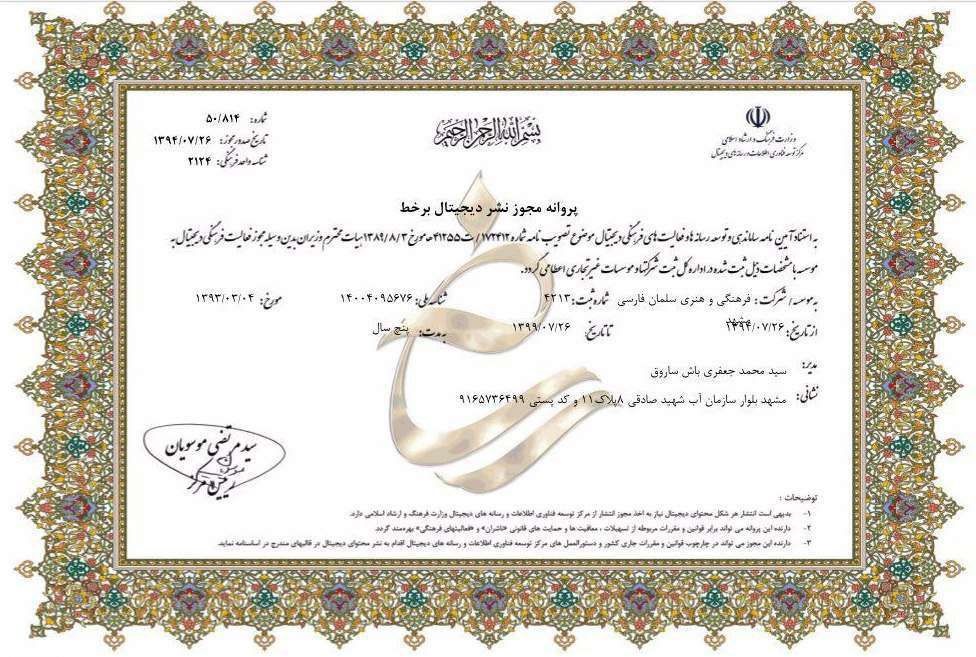 بسم الله الرحمن الرحیم
وزارت فرهنگ و ارشاد اسلامی
مرکز توسعه فناوری اطلاعات و رسانه های دیجیتال
شماره: ۵۰/۸۱۴
تاریخ صدور مجوز: ۱۳۹۴/۰۷/۲۶
شناسه واحد فرهنگی: ۲۱۲۴
پروانه مجوز نشر دیجیتال برخط
به استناد آیین نامه ساماندهی و توسعه رسانه ها و فعالیت های فرهنگی دیجیتال موضوع تصویب نامه شماره ۱۷۲۴۱۲/ت۴۱۲۵۵ه مورخ ۱۳۸۹/۸/۳ هیات محترم وزیران بدین وسیله مجوز فعالیت فرهنگی دیجیتال به
موسسه با مشخصات ذیل ثبت شده در اداره کل ثبت شرکتها و موسسات غیر تجاری اعطا می گردد.
به موسسه / شرکت : فرهنگی و هنری سلمان فارسی شماره ثبت: ۴۲۱۳ شناسه ملی: ۱۴۰۰۴۰۹۵۶۷۶ مورخ: ۱۳۹۳/۰۳/۰۴
مشهد
از تاریخ: ۱۳۹۴/۰۷/۲۶ تا تاریخ: ۱۳۹۹/۰۷/۲۶ به مدت: پنج سال
مدیر: سید محمد جعفری باش ساروق
نشانی: مشهد بلوار سازمان آب شهید صادقی ۸پلاک۱۱ و کد پستی ۹۱۶۵۷۳۶۴۹۹
سید مرتضی موسویان
رئیس مرکز
توضیحات :
۱- بدیهی است انتشار هر شکل محتوای دیجیتال نیاز به اخذ مجوز انتشار از مرکز توسعه فناوری اطلاعات و رسانه های دیجیتال وزارت فرهنگ و ارشاد اسلامی دارد.
۲- دارنده این پروانه می تواند برابر قوانین و مقررات مربوطه از تسهیلات ، معافیت ها و حمایت های قانونی «ناشران» و «فعالیتهای فرهنگی» بهره‌مند گردد.
۳- دارنده این مجوز می تواند در چارچوب قوانین و مقررات جاری کشور و دستورالعمل های مرکز توسعه فناوری اطلاعات و رسانه های دیجیتال اقدام به نشر محتوای دیجیتال در قالبهای مندرج در اساسنامه نماید.